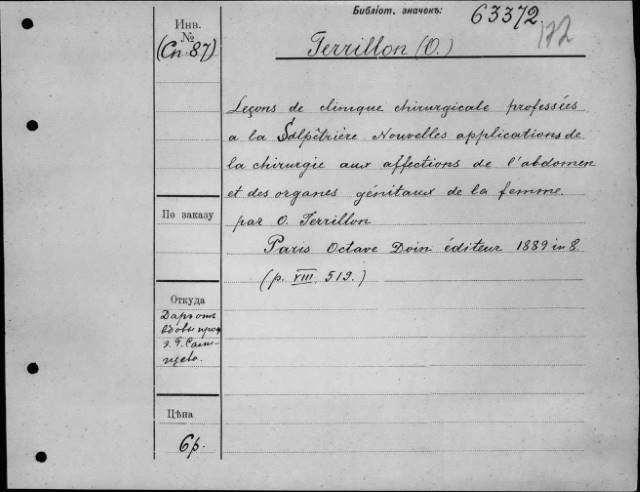 Библіот. значекъ: 63372
172
Инв.
№
(Сп. 87)
Terrillon (O.)
Leçons de clinique chirurgicale professées
a la Salpêtrière Nouvelles applications de
la chirurgie aux affections de l'abdomen
et des organes génitaux de la femme.
par O. Terrillon
Paris Octave Doin éditeur 1889 in 8
(p. VIII. 519.)
По заказу
Откуда
Даръ отъ
вдовы проф
Цѣна
6 р.